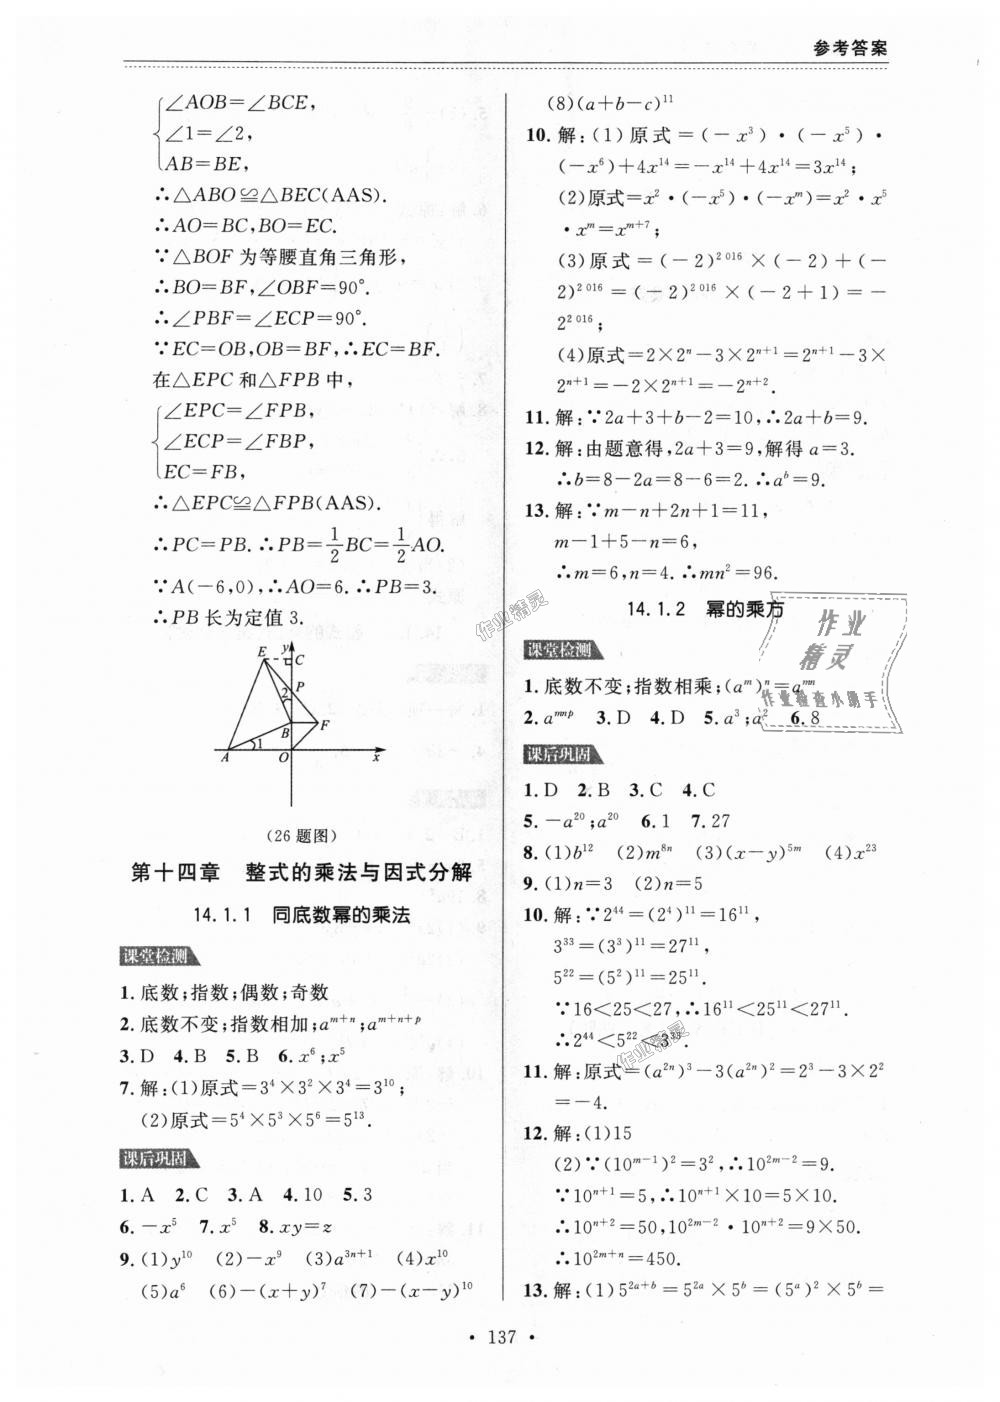 参考答案
∠AOB=∠BCE,
∠1=∠2,
AB=BE,
∴△ABO≌△BEC(AAS).
∴AO=BC,BO=EC.
∵△BOF为等腰直角三角形,
∴BO=BF,∠OBF=90°.
∴∠PBF=∠ECP=90°.
∵EC=OB,OB=BF,∴EC=BF.
在△EPC和△FPB中,
∠EPC=∠FPB,
∠ECP=∠FBP,
EC=FB,
∴△EPC≌△FPB(AAS).
∴PC=PB.∴PB=1/2BC=1/2AO.
∵A(-6,0),∴AO=6.∴PB=3.
∴PB长为定值3.
y
E
C
P
2
B
F
A
1
O
x
(26题图)
第十四章 整式的乘法与因式分解
14.1.1 同底数幂的乘法
课堂检测
1.底数;指数;偶数;奇数
2.底数不变;指数相加;a^{m+n};a^{m+n+p}
3.D 4.B 5.B 6.x^6;x^5
7.解:(1)原式=3^4×3^2×3^4=3^{10};
(2)原式=5^4×5^3×5^6=5^{13}.
课后巩固
1.A 2.C 3.A 4.10 5.3
6.-x^5 7.x^5 8.xy=z
9.(1)y^{10} (2)-x^9 (3)a^{3n+1} (4)x^{10}
(5)a^6 (6)-(x+y)^7 (7)-(x-y)^{10}
(8)(a+b-c)^{11}
10.解:(1)原式=(-x^3)·(-x^5)·
(-x^6)+4x^{14}=-x^{14}+4x^{14}=3x^{14};
(2)原式=x^2·(-x^5)·(-x^m)=x^2·x^5
·x^m=x^{m+7};
(3)原式=(-2)^{2016}×(-2)+(-
2)^{2016}=(-2)^{2016}×(-2+1)=-
2^{2016};
(4)原式=2×2^n-3×2^{n+1}=2^{n+1}-3×
2^{n+1}=-2×2^{n+1}=-2^{n+2}.
11.解:∵2a+3+b-2=10,∴2a+b=9.
12.解:由题意得,2a+3=9,解得a=3.
∴b=8-2a=8-6=2.∴a^b=9.
13.解:∵m-n+2n+1=11,
m-1+5-n=6,
∴m=6,n=4.∴mn^2=96.
14.1.2 幂的乘方
课堂检测
1.底数不变;指数相乘;(a^m)^n=a^{mn}
2.a^{mnp} 3.D 4.D 5.a^3;a^2 6.8
课后巩固
1.D 2.B 3.C 4.C
5.-a^{20};a^{20} 6.1 7.27
8.(1)b^{12} (2)m^{8n} (3)(x-y)^{5m} (4)x^{23}
9.(1)n=3 (2)n=5
10.解:∵2^{44}=(2^4)^{11}=16^{11},
3^{33}=(3^3)^{11}=27^{11},
5^{22}=(5^2)^{11}=25^{11}.
∵16<25<27,∴16^{11}<25^{11}<27^{11}.
∴2^{44}<5^{22}<3^{33}.
11.解:原式=(a^{2n})^3-3(a^{2n})^2=2^3-3×2^2
=-4.
12.解:(1)15
(2)∵(10^{m-1})^2=3^2,∴10^{2m-2}=9.
∵10^{n+1}=5,∴10^{n+1}×10=5×10.
∴10^{n+2}=50,10^{2m-2}·10^{n+2}=9×50.
∴10^{2m+n}=450.
13.解:(1)5^{2a+b}=5^{2a}×5^b=(5^a)^2×5^b=
作业精灵
作业
精灵
作业检查小助手
作业精灵
• 137 •